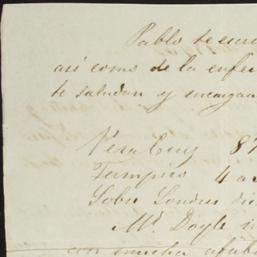 Pablo te escri
así como de la enfer
te saludan y encargan
Vera Cruz 87
Tampico 4 a
Sobre Londres di
Mr. Doyle
con mucha afab